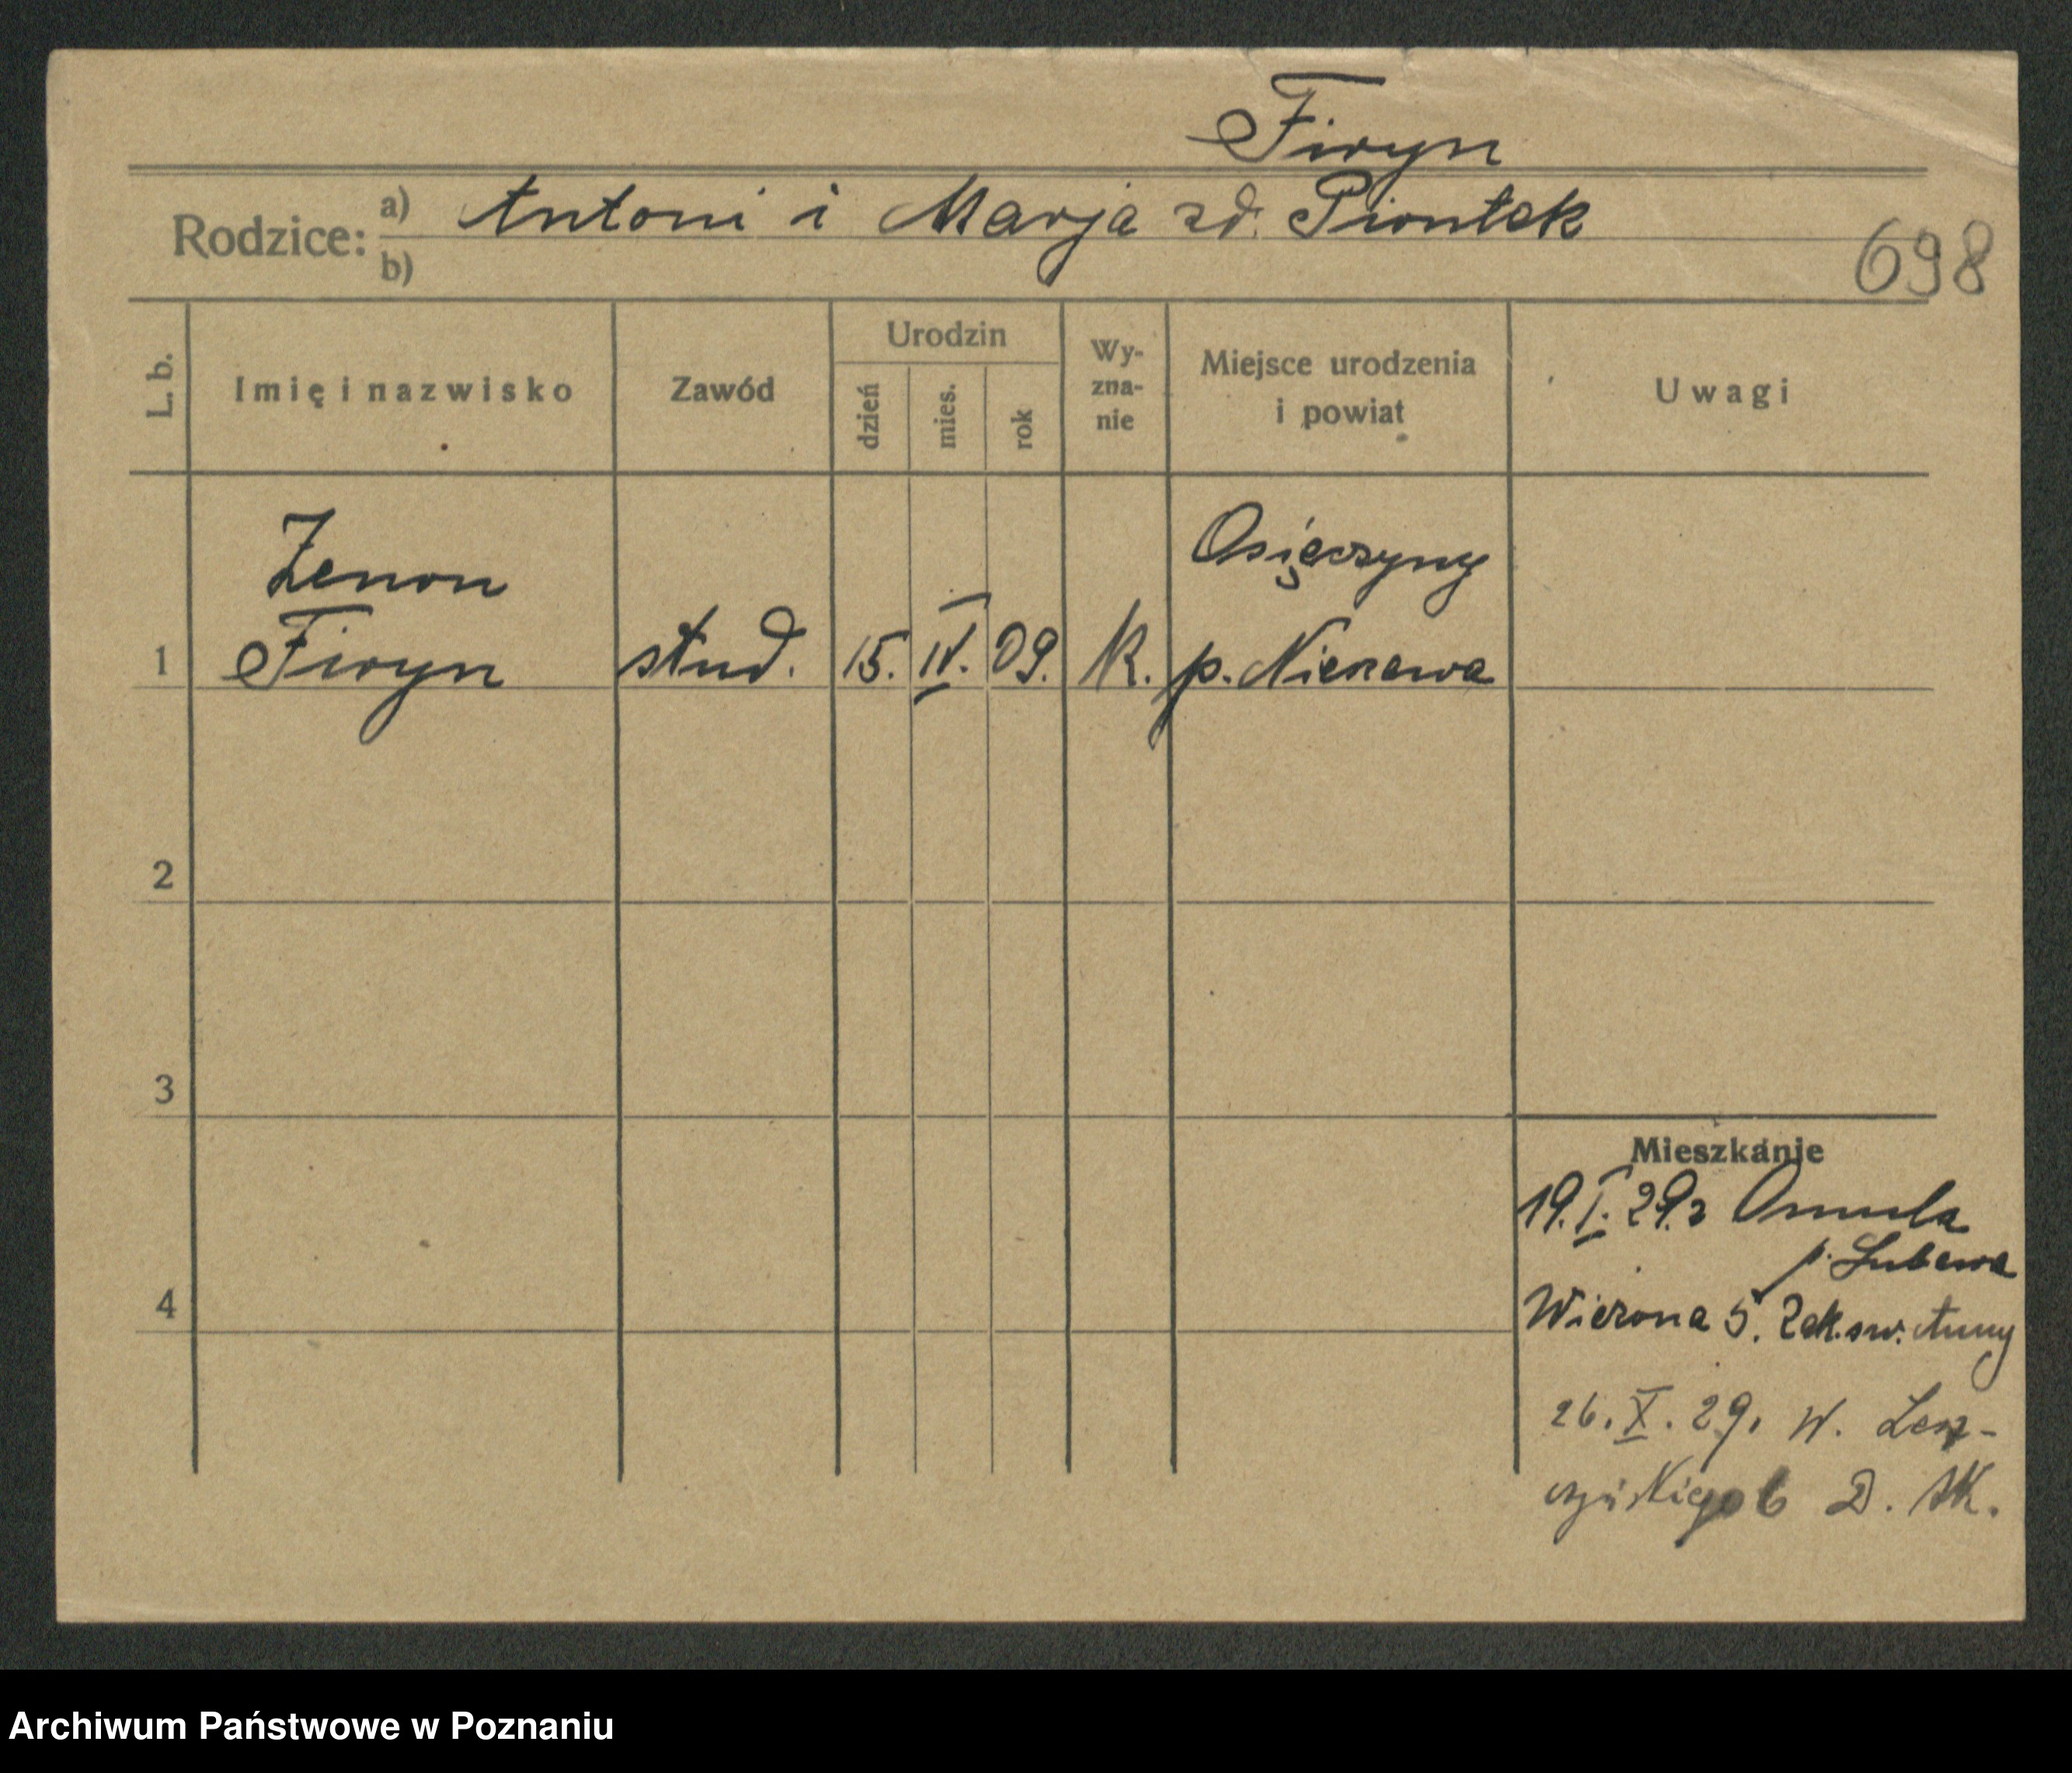 Firyn
Rodzice: a) Antoni i Marja zd. Piontek
b)
698
L. b.
Imię i nazwisko
Zawód
Urodzin
dzień
mies.
rok
Wy-
zna-
nie
Miejsce urodzenia
i powiat
Uwagi
Zenon
Osięczyny
1 Firyn stud. 15. IV. 09. K. p. Nieszawa
2
3
Mieszkanie
19.I.29.z Omula
p. Lubawa
4
Wieżowa 5. Zak. św. Anny
26. X. 29. W.
6 D. AK.
Archiwum Państwowe w Poznaniu